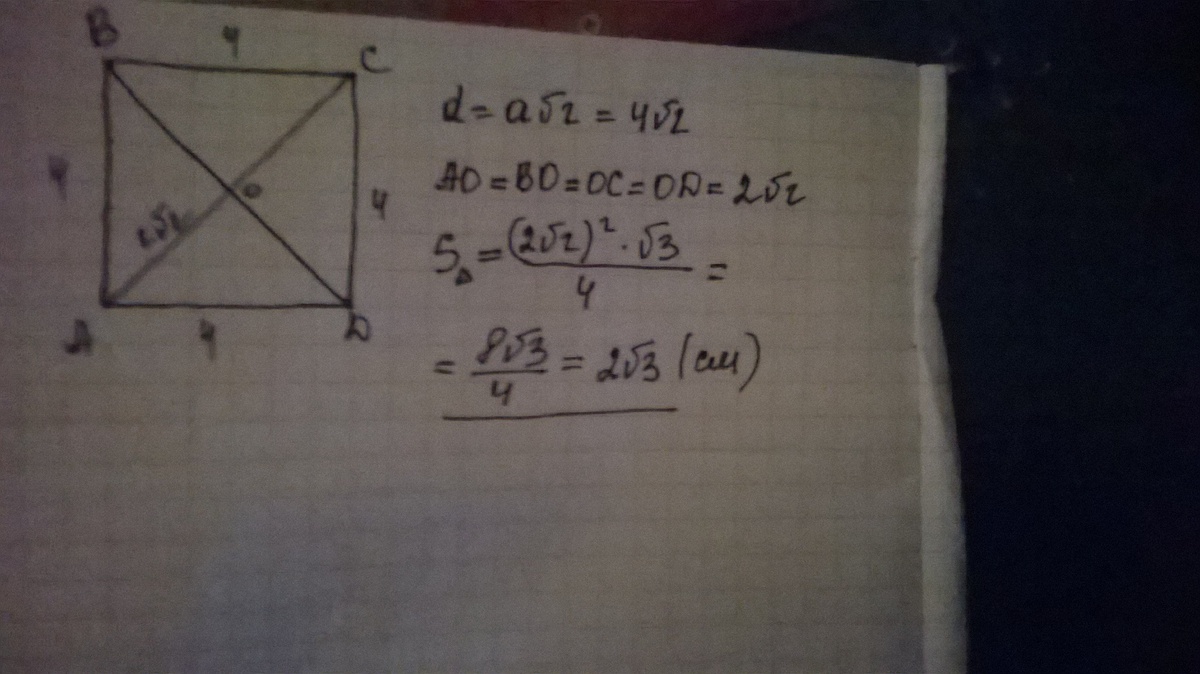 B 4 C
4
4
2√2
O
A 4 D
d = a√2 = 4√2
AO = BO = OC = OD = 2√2
S△ = (2√2)² · √3 / 4 =
= 8√3 / 4 = 2√3 (см)